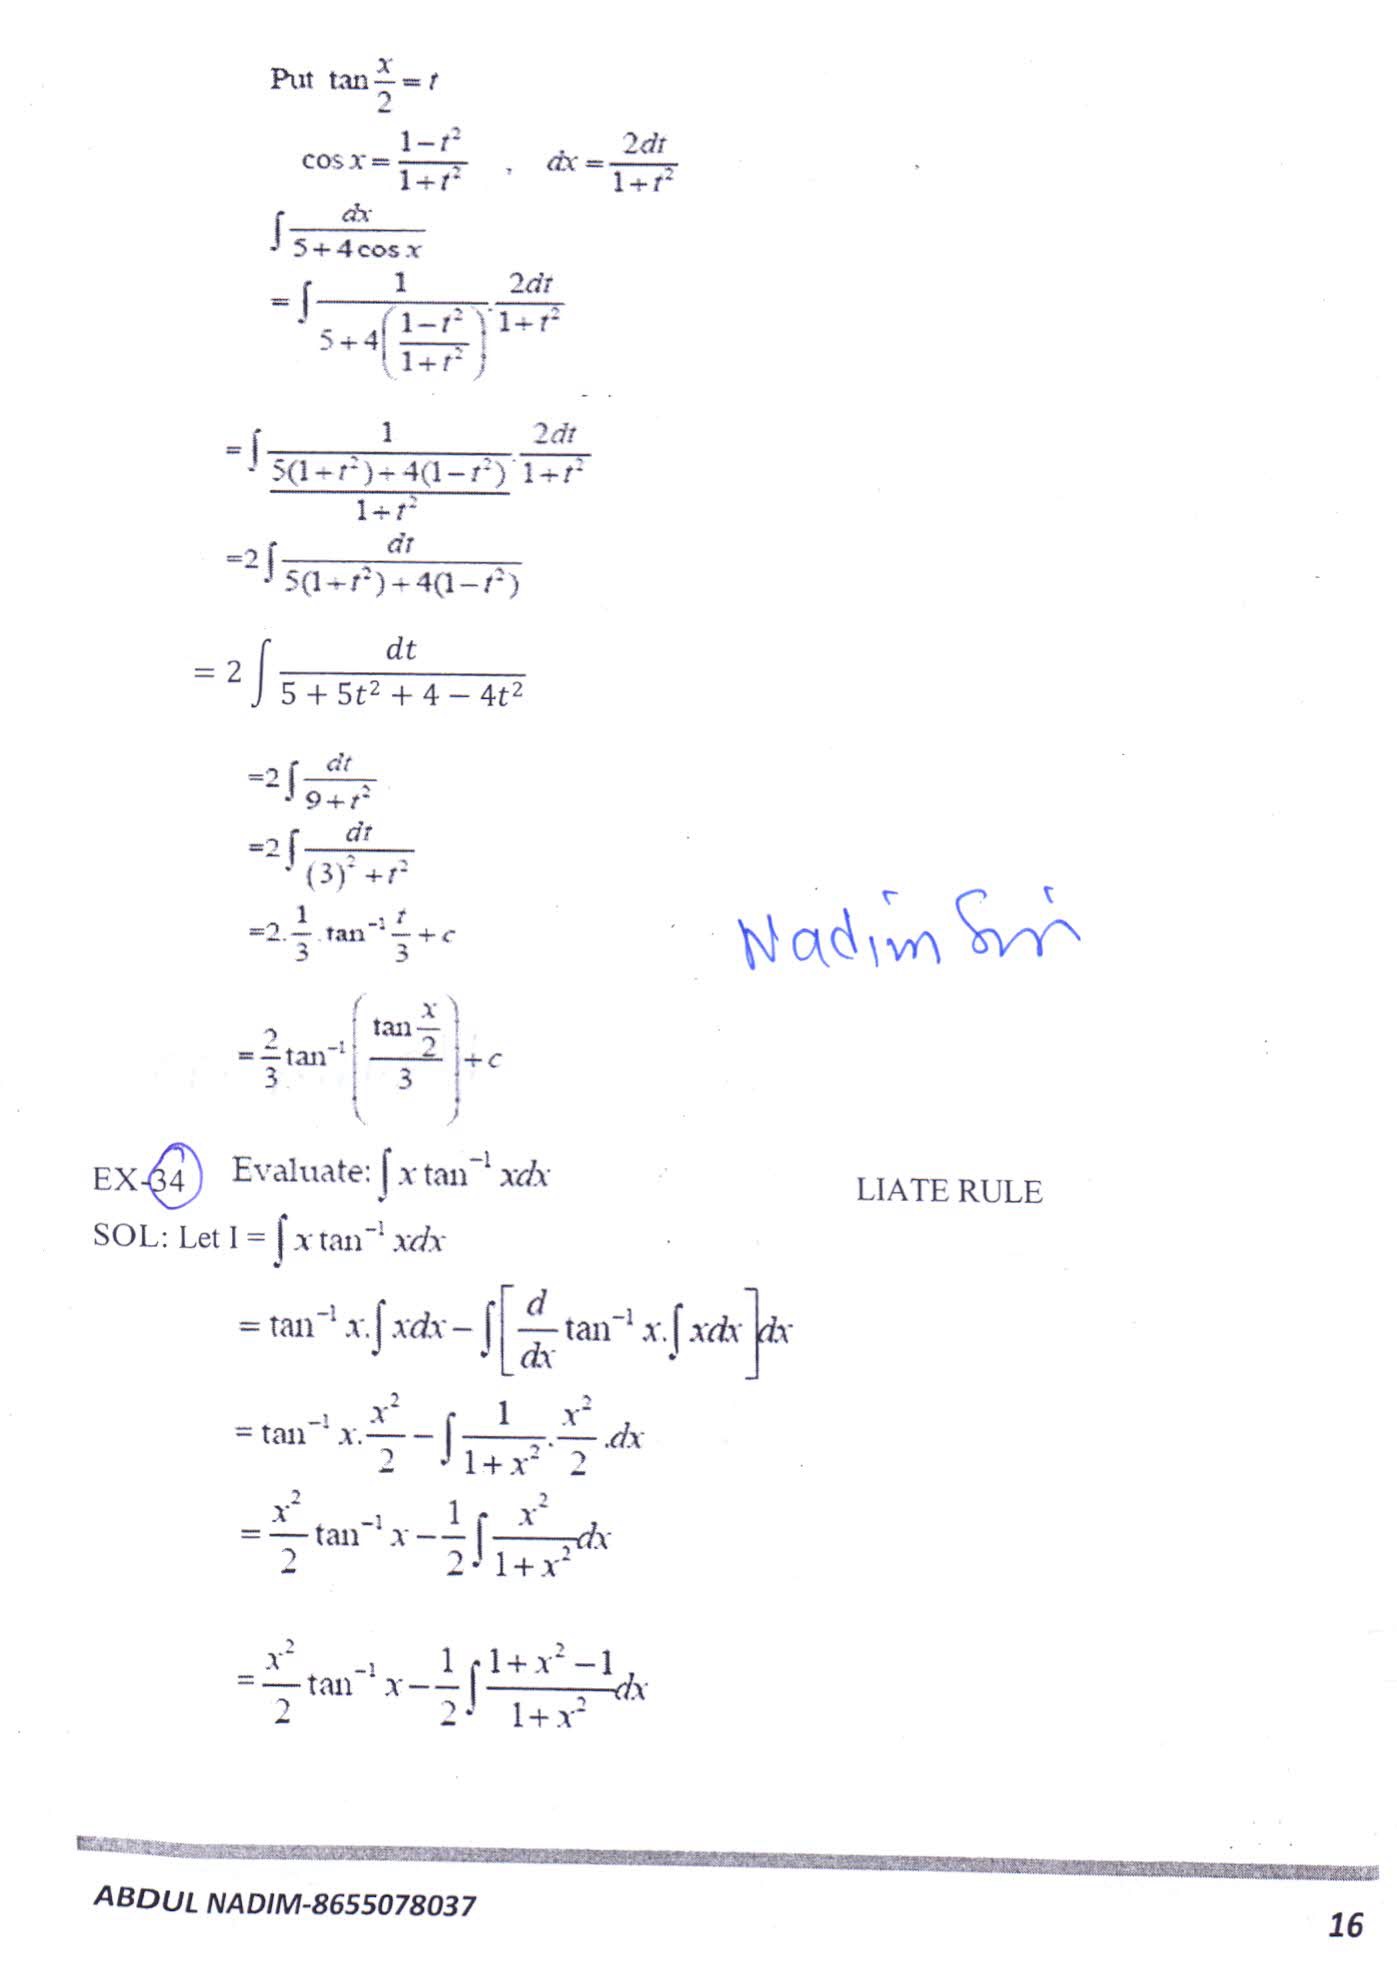 Put tan x/2 = t
cos x = (1−t²)/(1+t²) , dx = 2dt/(1+t²)
∫ dx/(5+4cos x)
= ∫ 1/(5+4((1−t²)/(1+t²))) . 2dt/(1+t²)
= ∫ 1/((5(1+t²)+4(1−t²))/(1+t²)) . 2dt/(1+t²)
=2∫ dt/(5(1+t²)+4(1−t²))
= 2 ∫ dt/(5 + 5t² + 4 − 4t²)
=2∫ dt/(9+t²)
=2∫ dt/((3)²+t²)
=2. 1/3 .tan⁻¹ t/3 + c
Nadim Sir
= 2/3 tan⁻¹((tan x/2)/3) + c
EX-34 Evaluate: ∫ x tan⁻¹ xdx LIATE RULE
SOL: Let I = ∫ x tan⁻¹ xdx
= tan⁻¹ x.∫ xdx − ∫[d/dx tan⁻¹ x.∫ xdx]dx
= tan⁻¹ x. x²/2 − ∫ 1/(1+x²) . x²/2 .dx
= x²/2 tan⁻¹ x − 1/2 ∫ x²/(1+x²) dx
= x²/2 tan⁻¹ x − 1/2 ∫ (1+x²−1)/(1+x²) dx
ABDUL NADIM-8655078037
16